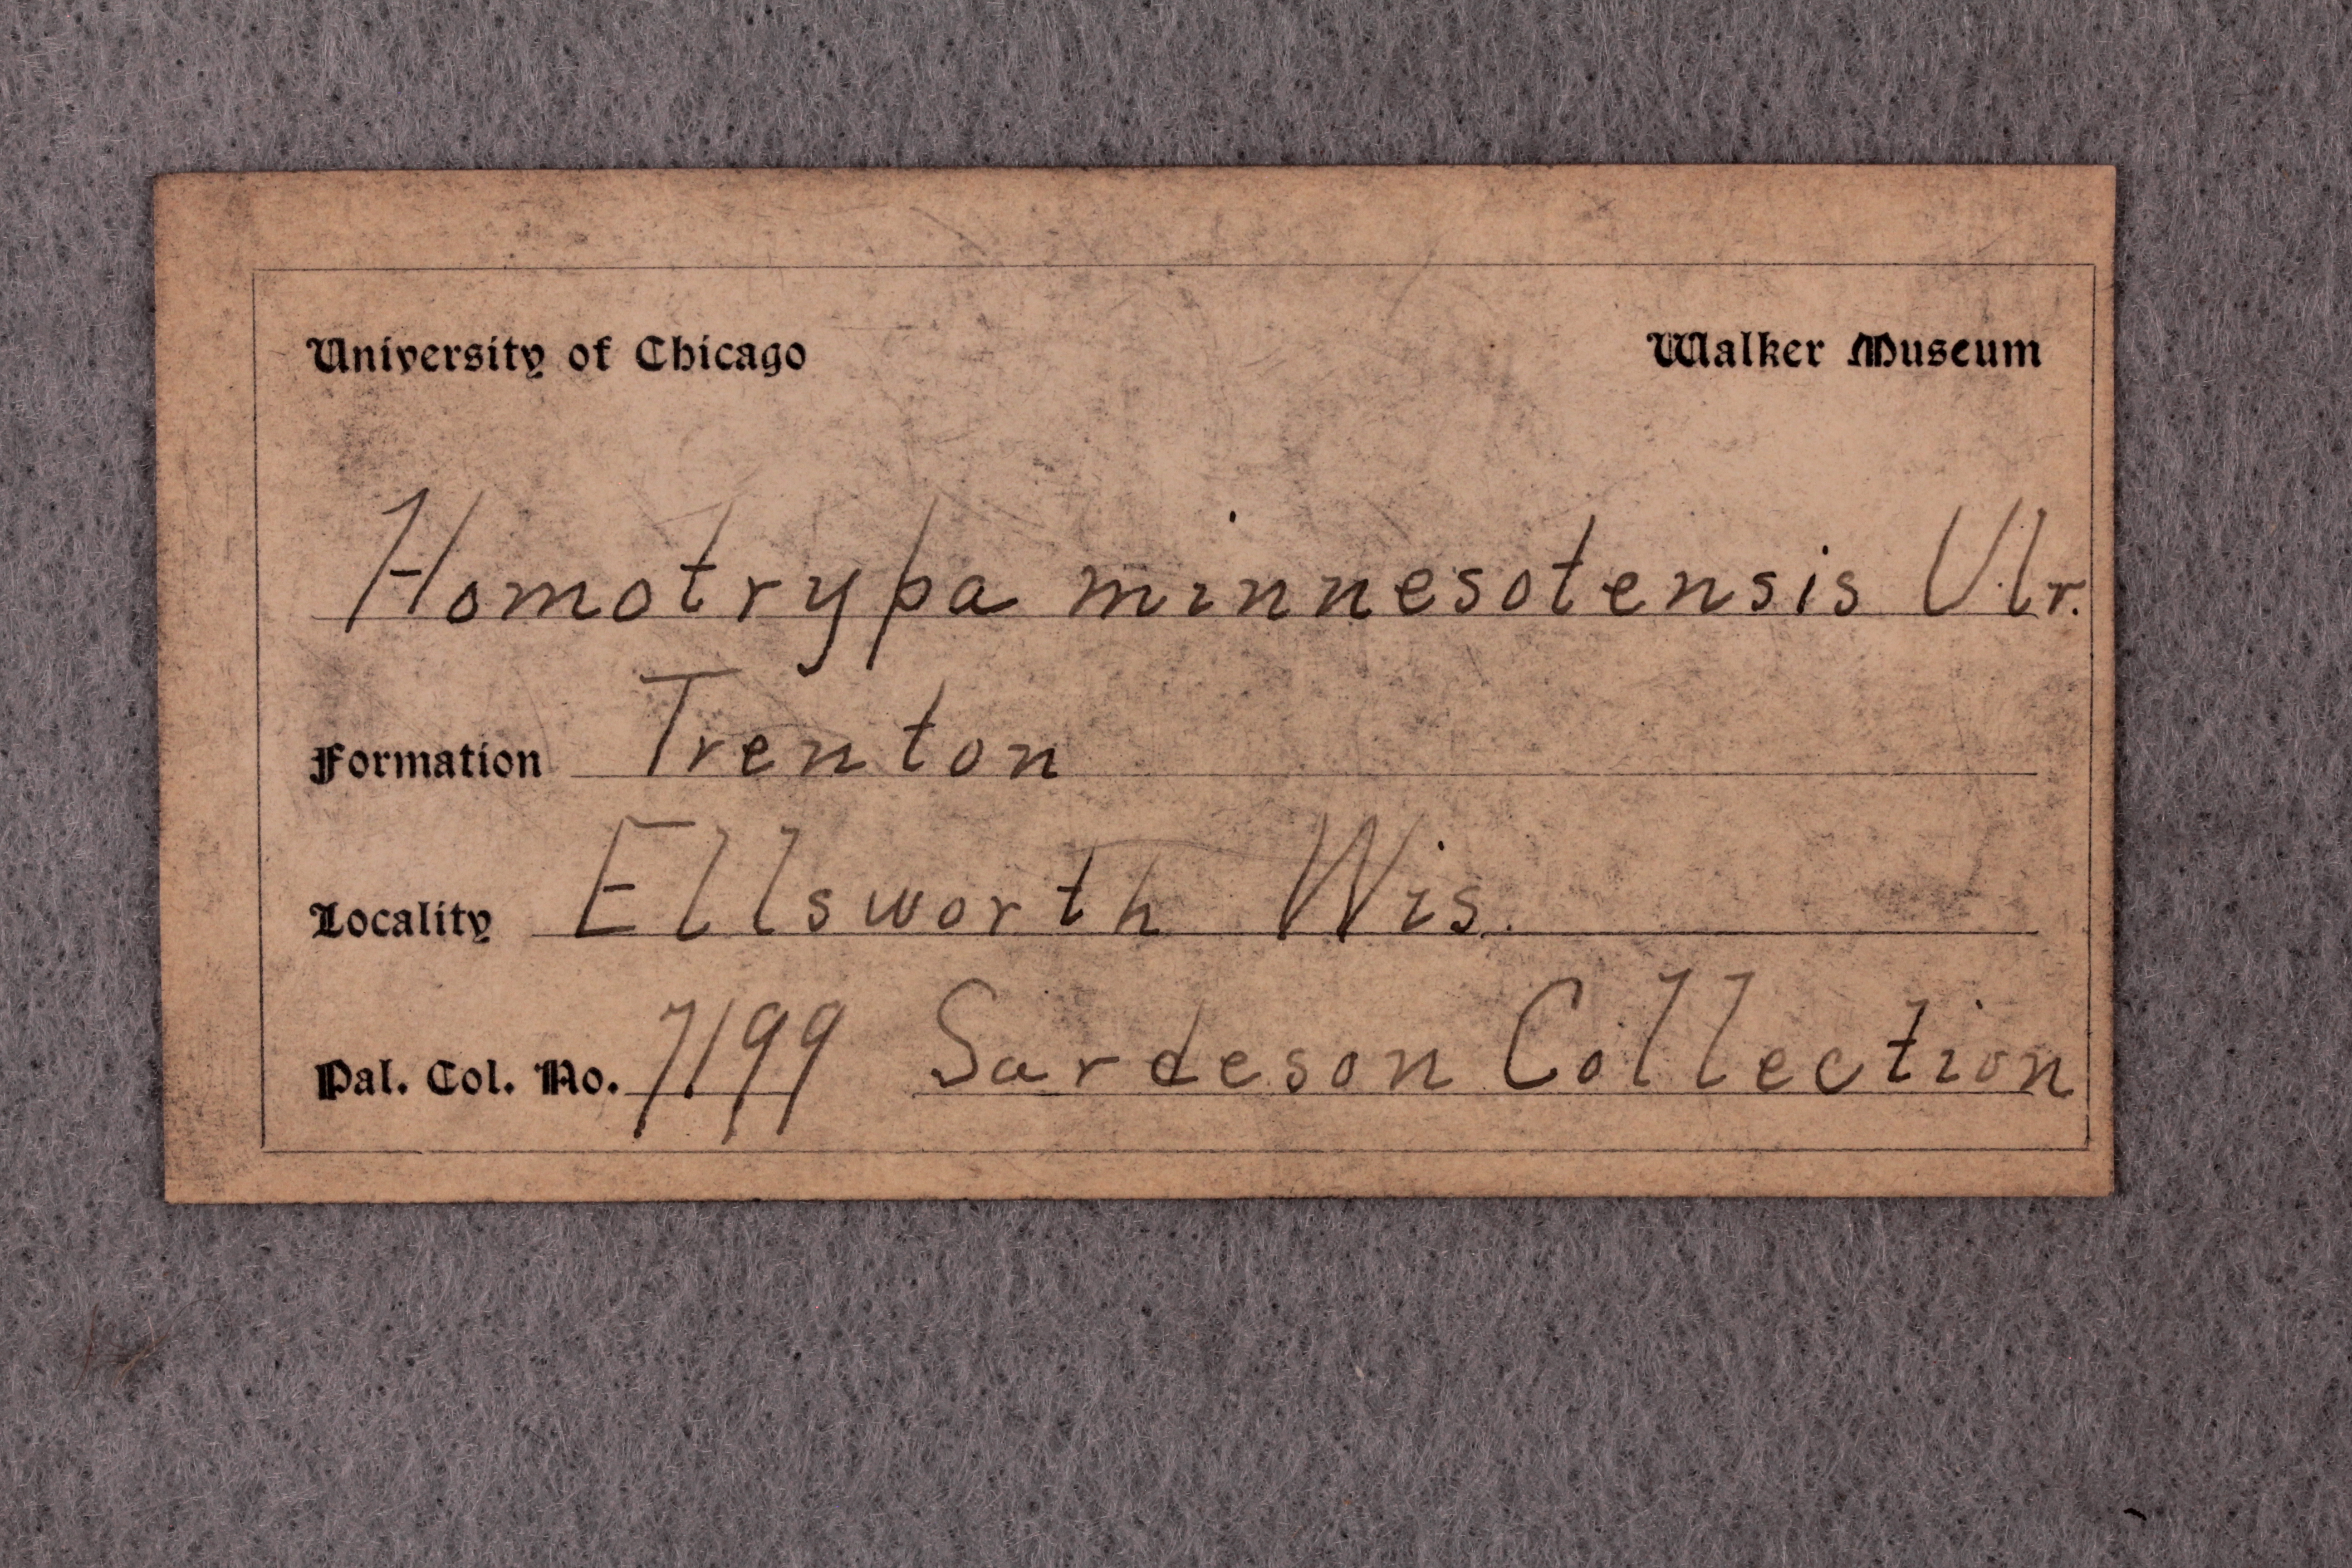 University of Chicago Walker Museum
Homotrypa minnesotensis Ulr.
Formation Trenton
Locality Ellsworth Wis.
Pal. Col. No. 7199 Sardeson Collection